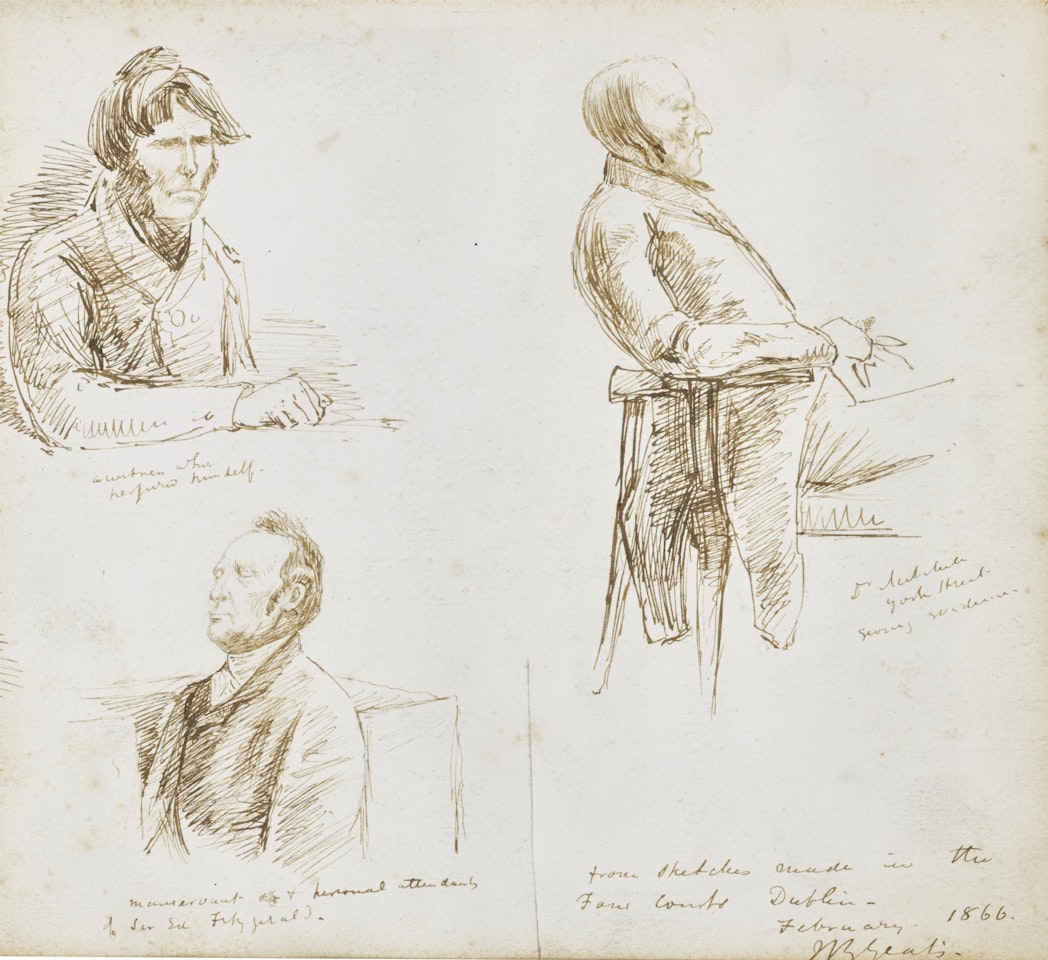 a witness who
perjured himself.
manservant & personal attendant
of Sir Ed Fitzgerald.
Dr
York Street
giving evidence
from sketches made in the
Four Courts Dublin -
February. 1866.
JB Yeats.